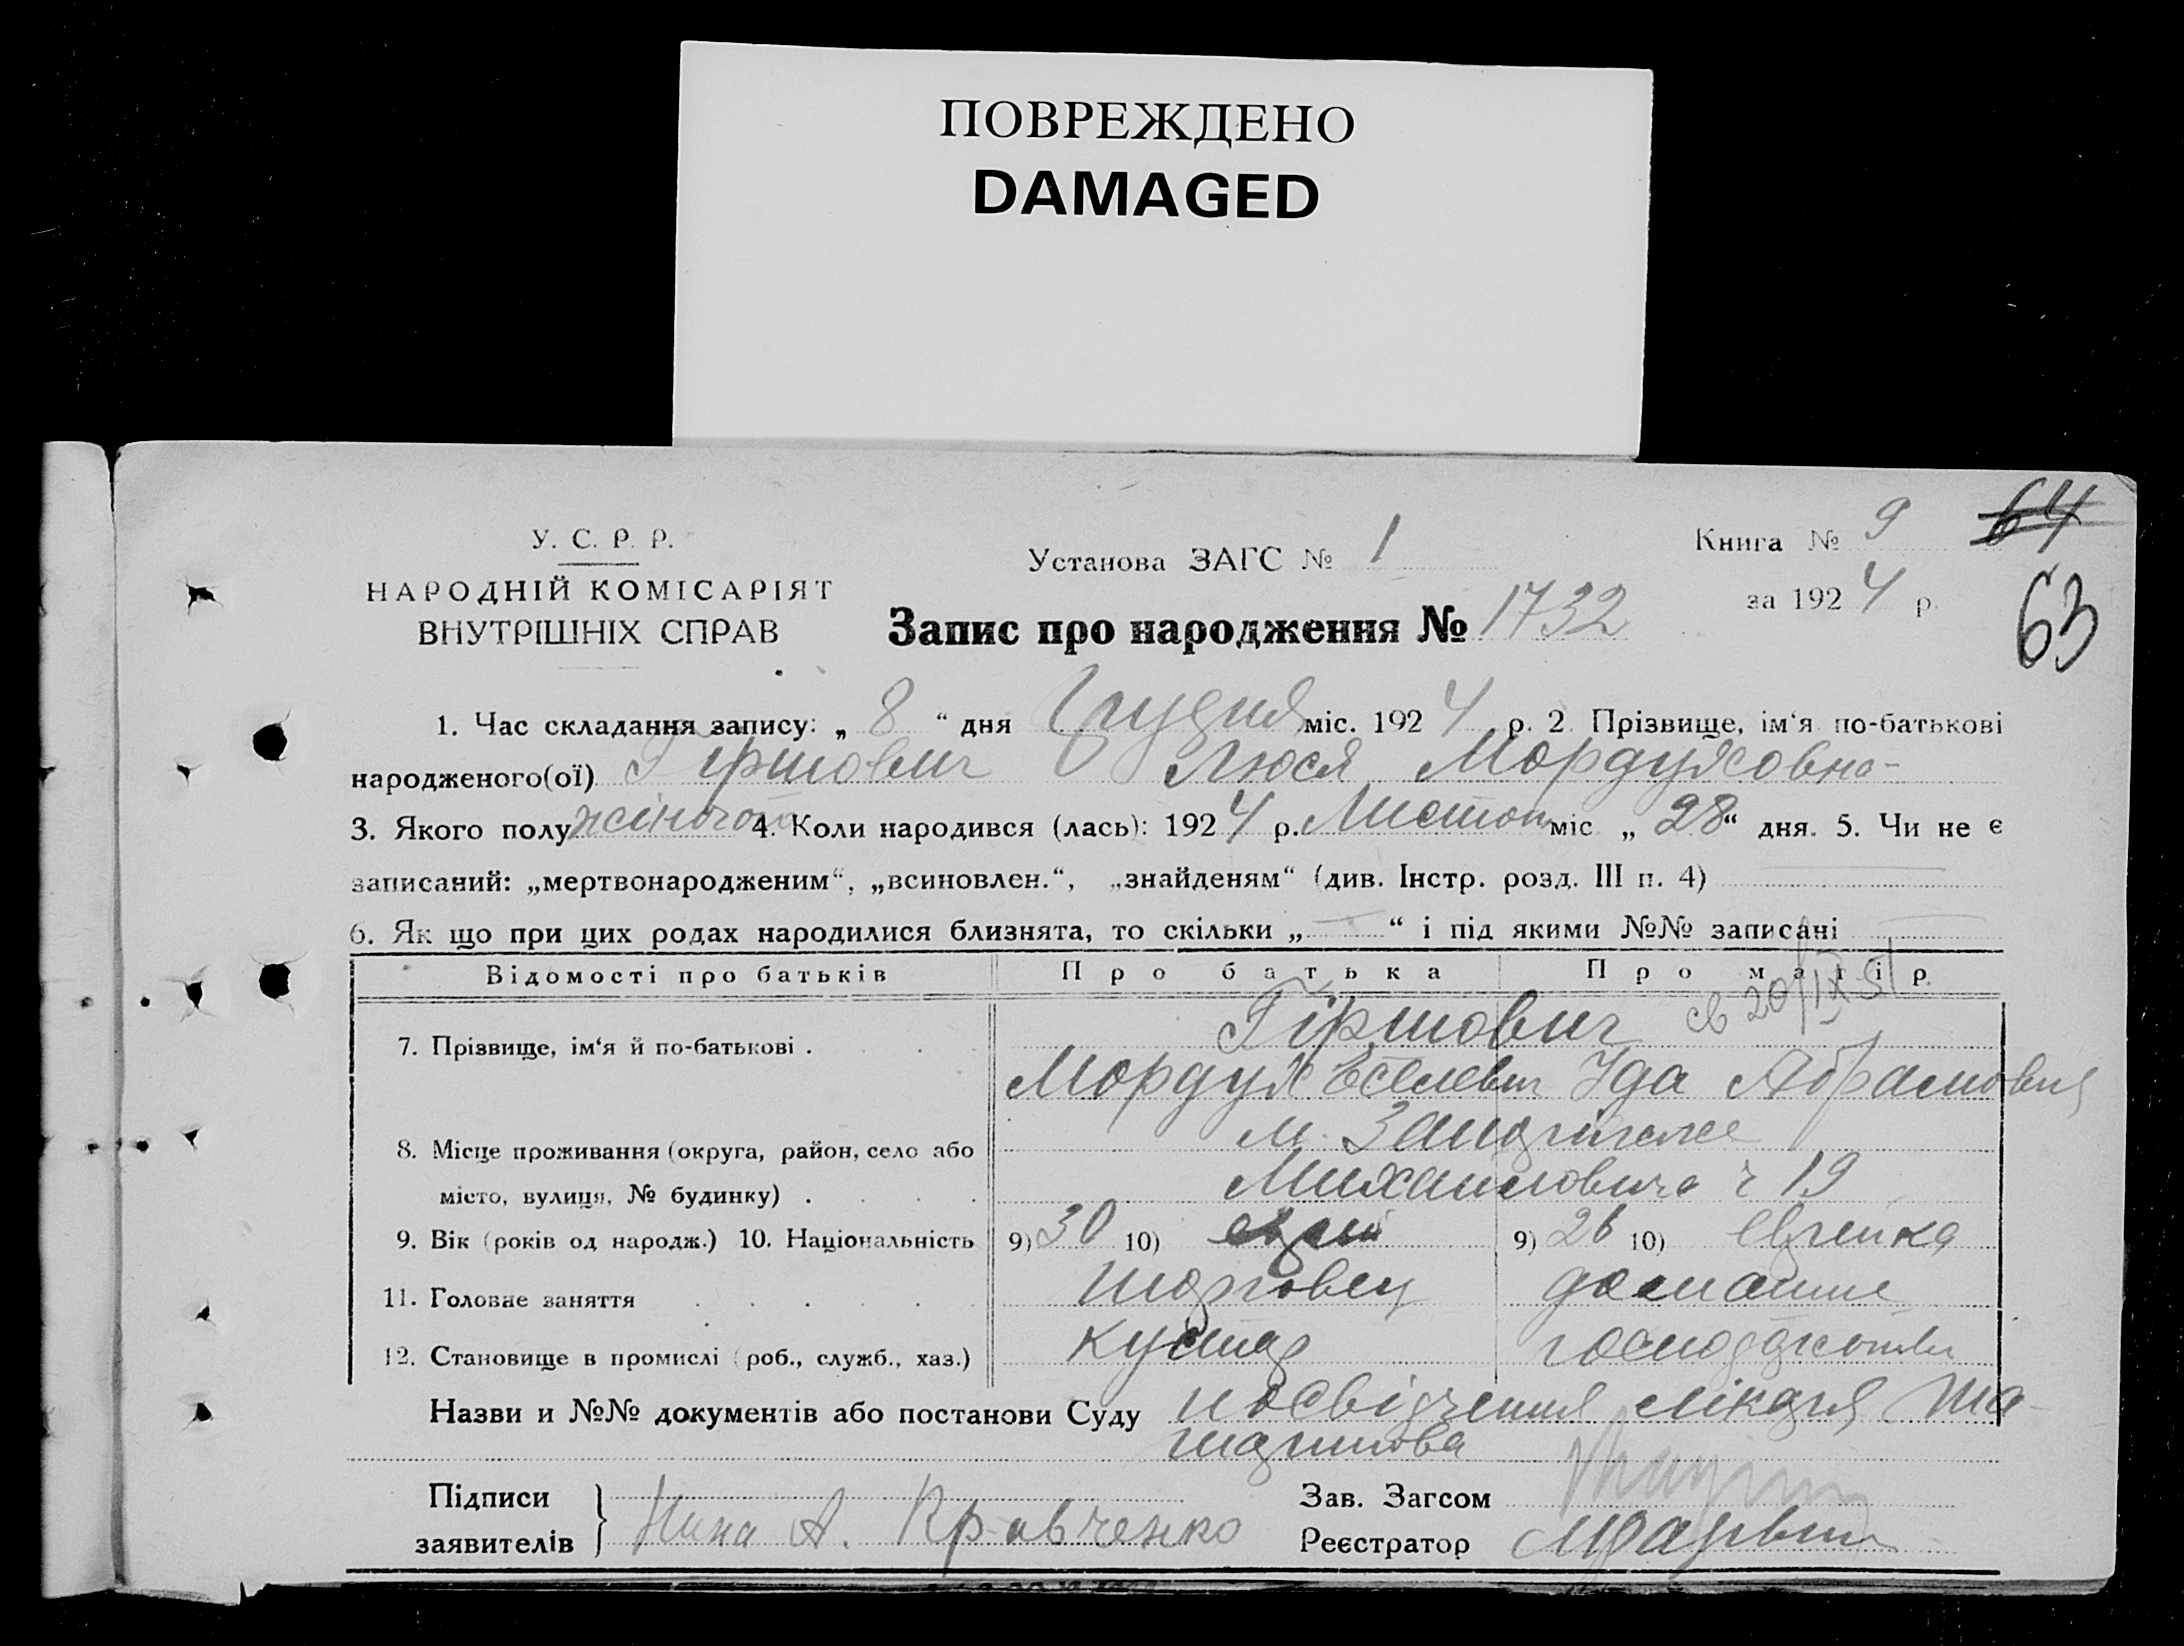 ПОВРЕЖДЕНО
DAMAGED
У. С. Р. Р.
НАРОДНІЙ КОМІСАРІЯТ
ВНУТРІШНІХ СПРАВ
Установа ЗАГС № 1
Книга № 9
64
за 1924 р.
63
Запис про народження № 1732
1. Час складання запису: „ 8 “ дня Грудня міс. 1924 р. 2. Прізвище, ім‘я по-батькові
народженого(ої) Гіршович Люся Мордуховна
3. Якого полу жіночого 4. Коли народився (лась): 1924 р. Листоп міс „ 28 “ дня. 5. Чи не є
записаний: „мертвонародженим“, „всиновлен.“, „знайденям“ (див. Інстр. розд. III п. 4)
6. Як що при цих родах народилися близнята, то скільки „ — “ і під якими №№ записані
Відомості про батьків Про батька Про матір
св 20/IX 51
7. Прізвище, ім‘я й по-батькові . Гіршович
Мордух Іда Абрамовна
8. Місце проживання (округа, район, село або м.
місто, вулиця, № будинку) . ч 19
9. Вік (років од народж.) 10. Національність 9) 30 10) єврей 9) 26 10) єврейка
11. Головне заняття домашнє
12. Становище в промислі (роб., служб., хаз.) кустар
Назви и №№ документів або постанови Суду посвідчення лікаря
Підписи
заявителів Нина А. Кравченко
Зав. Загсом
Реєстратор